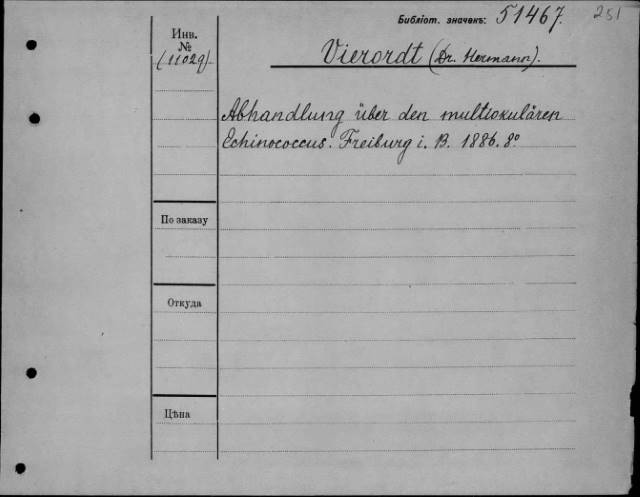 Библіот. значекъ: 51467. 251
Инв.
№
(11029)
Vierordt (Dr. Hermann).
Abhandlung über den multiokulären
Echinococcus. Freiburg i. B. 1886. 8°
По заказу
Откуда
Цѣна